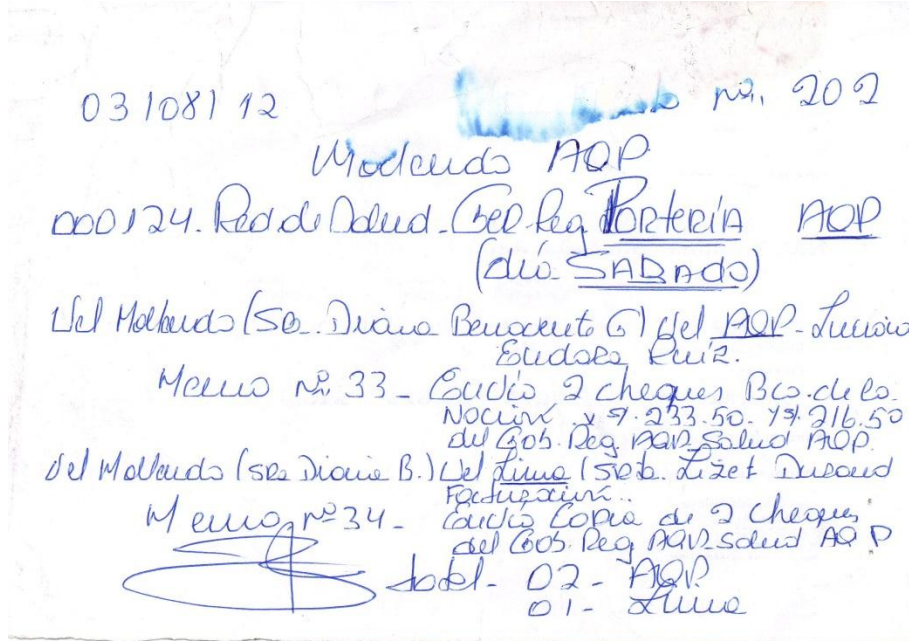 03/08/12 nº. 202
Mollendo AQP
000124. Red de Salud - Gob Reg PORTERÍA AQP
(día SÁBADO)
Del Mollendo (Sra. Diana Benavente G) Del AQP - Luciano
Eudoza Ruiz.
Memo Nº 33 - Envío 2 cheques Bco. de la
Nación x S/. 233.50. y S/. 216.50
del Gob. Reg AQP Salud AQP
Del Mollendo (Sra Diana B.) Del Lima (Srta. Lizet Durand
Facturación..
Memo Nº 34 - Envío Copia de 2 cheques
del Gob. Reg AQP Salud AQP
total - 02 - AQP
01 - Lima